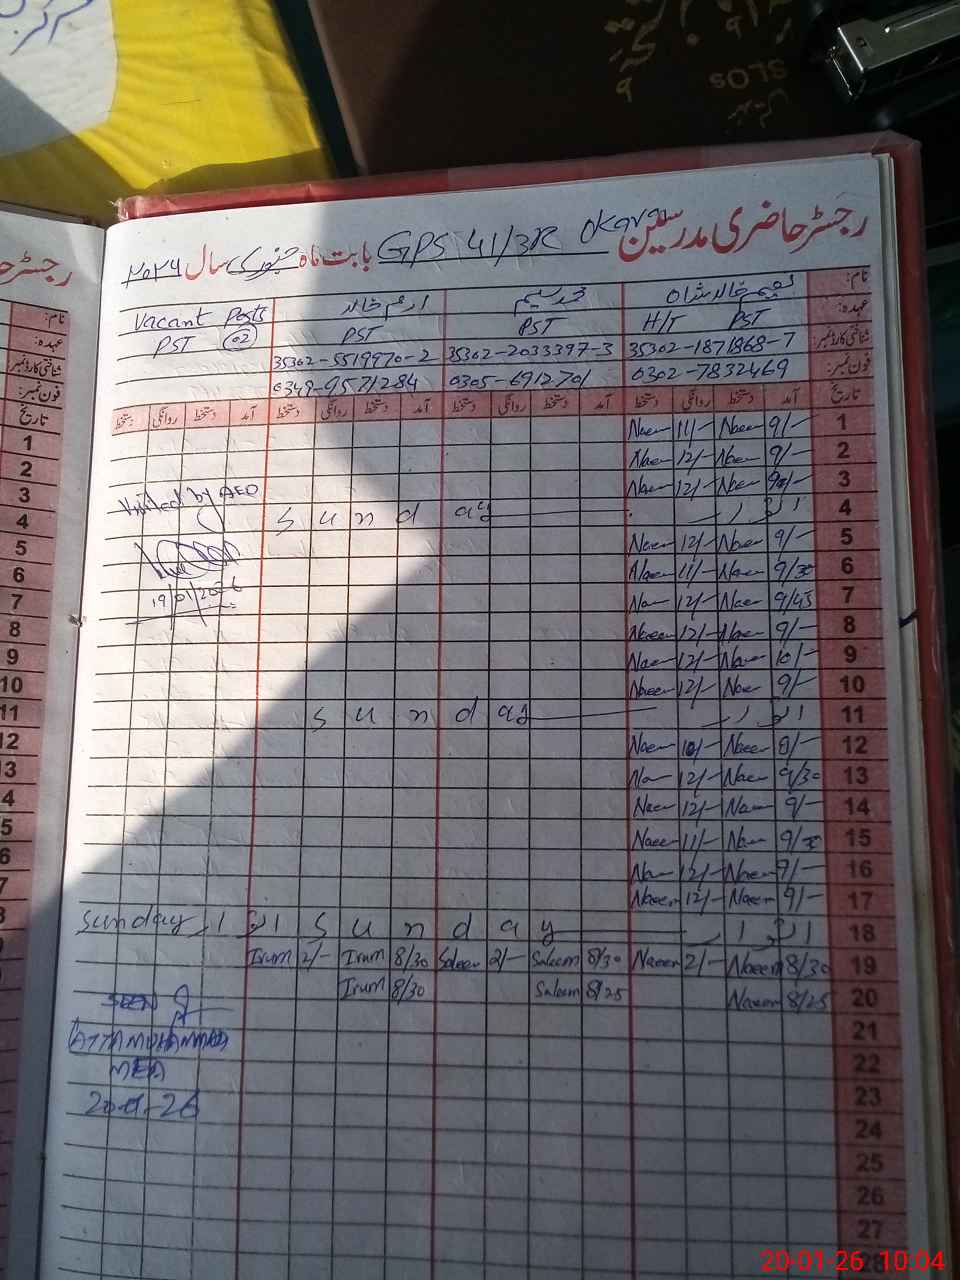 SLOs
رجسٹر حاضری مدرسین GPS 41/3R Okara بابت ماہ جنوری سال ۲۰۲۶
نام: نعیم خالد شاہ محمد سلیم ارم خالد Vacant Posts
عہدہ: H/T PST PST PST PST 02
شناختی کارڈ نمبر: 35302-1871868-7 35302-2033397-3 35302-5519970-2
فون نمبر: 0302-7832469 0305-6912701 0349-9571284
تاریخ آمد دستخط روانگی دستخط آمد دستخط روانگی دستخط آمد دستخط روانگی دستخط آمد دستخط روانگی دستخط
1 9/- Naeem 11/- Naeem
2 9/- Naeem 12/- Naeem
3 9/- Naeem 12/- Naeem
4 اتوار Sunday
5 9/- Naeem 12/- Naeem
6 9/30 Naeem 11/- Naeem
7 9/45 Naeem 12/- Naeem
8 9/- Naeem 12/- Naeem
9 10/- Naeem 12/- Naeem
10 9/- Naeem 12/- Naeem
11 اتوار Sunday
12 Naeem 10/- Naeem
13 9/30 Naeem 12/- Naeem
14 9/- Naeem 12/- Naeem
15 9/30 Naeem 11/- Naeem
16 9/- Naeem 12/- Naeem
17 9/- Naeem 12/- Naeem
18 اتوار Sunday اتوار Sunday
19 8/30 Naeem 2/- Naeem 8/30 Saleem 2/- Saleem 8/30 Irum 2/- Irum
20 8/25 Naeem 8/25 Saleem 8/30 Irum
21
22
23
24
25
26
27
28
Visited by AEO
19/01/2026
ATTA MUHAMMAD
MEA
20-01-26
رجسٹر
نام:
عہدہ:
شناختی کارڈ نمبر
فون نمبر:
تاریخ
1
2
3
4
5
6
7
8
9
10
11
12
13
4
5
6
7
20-01-26 10:04